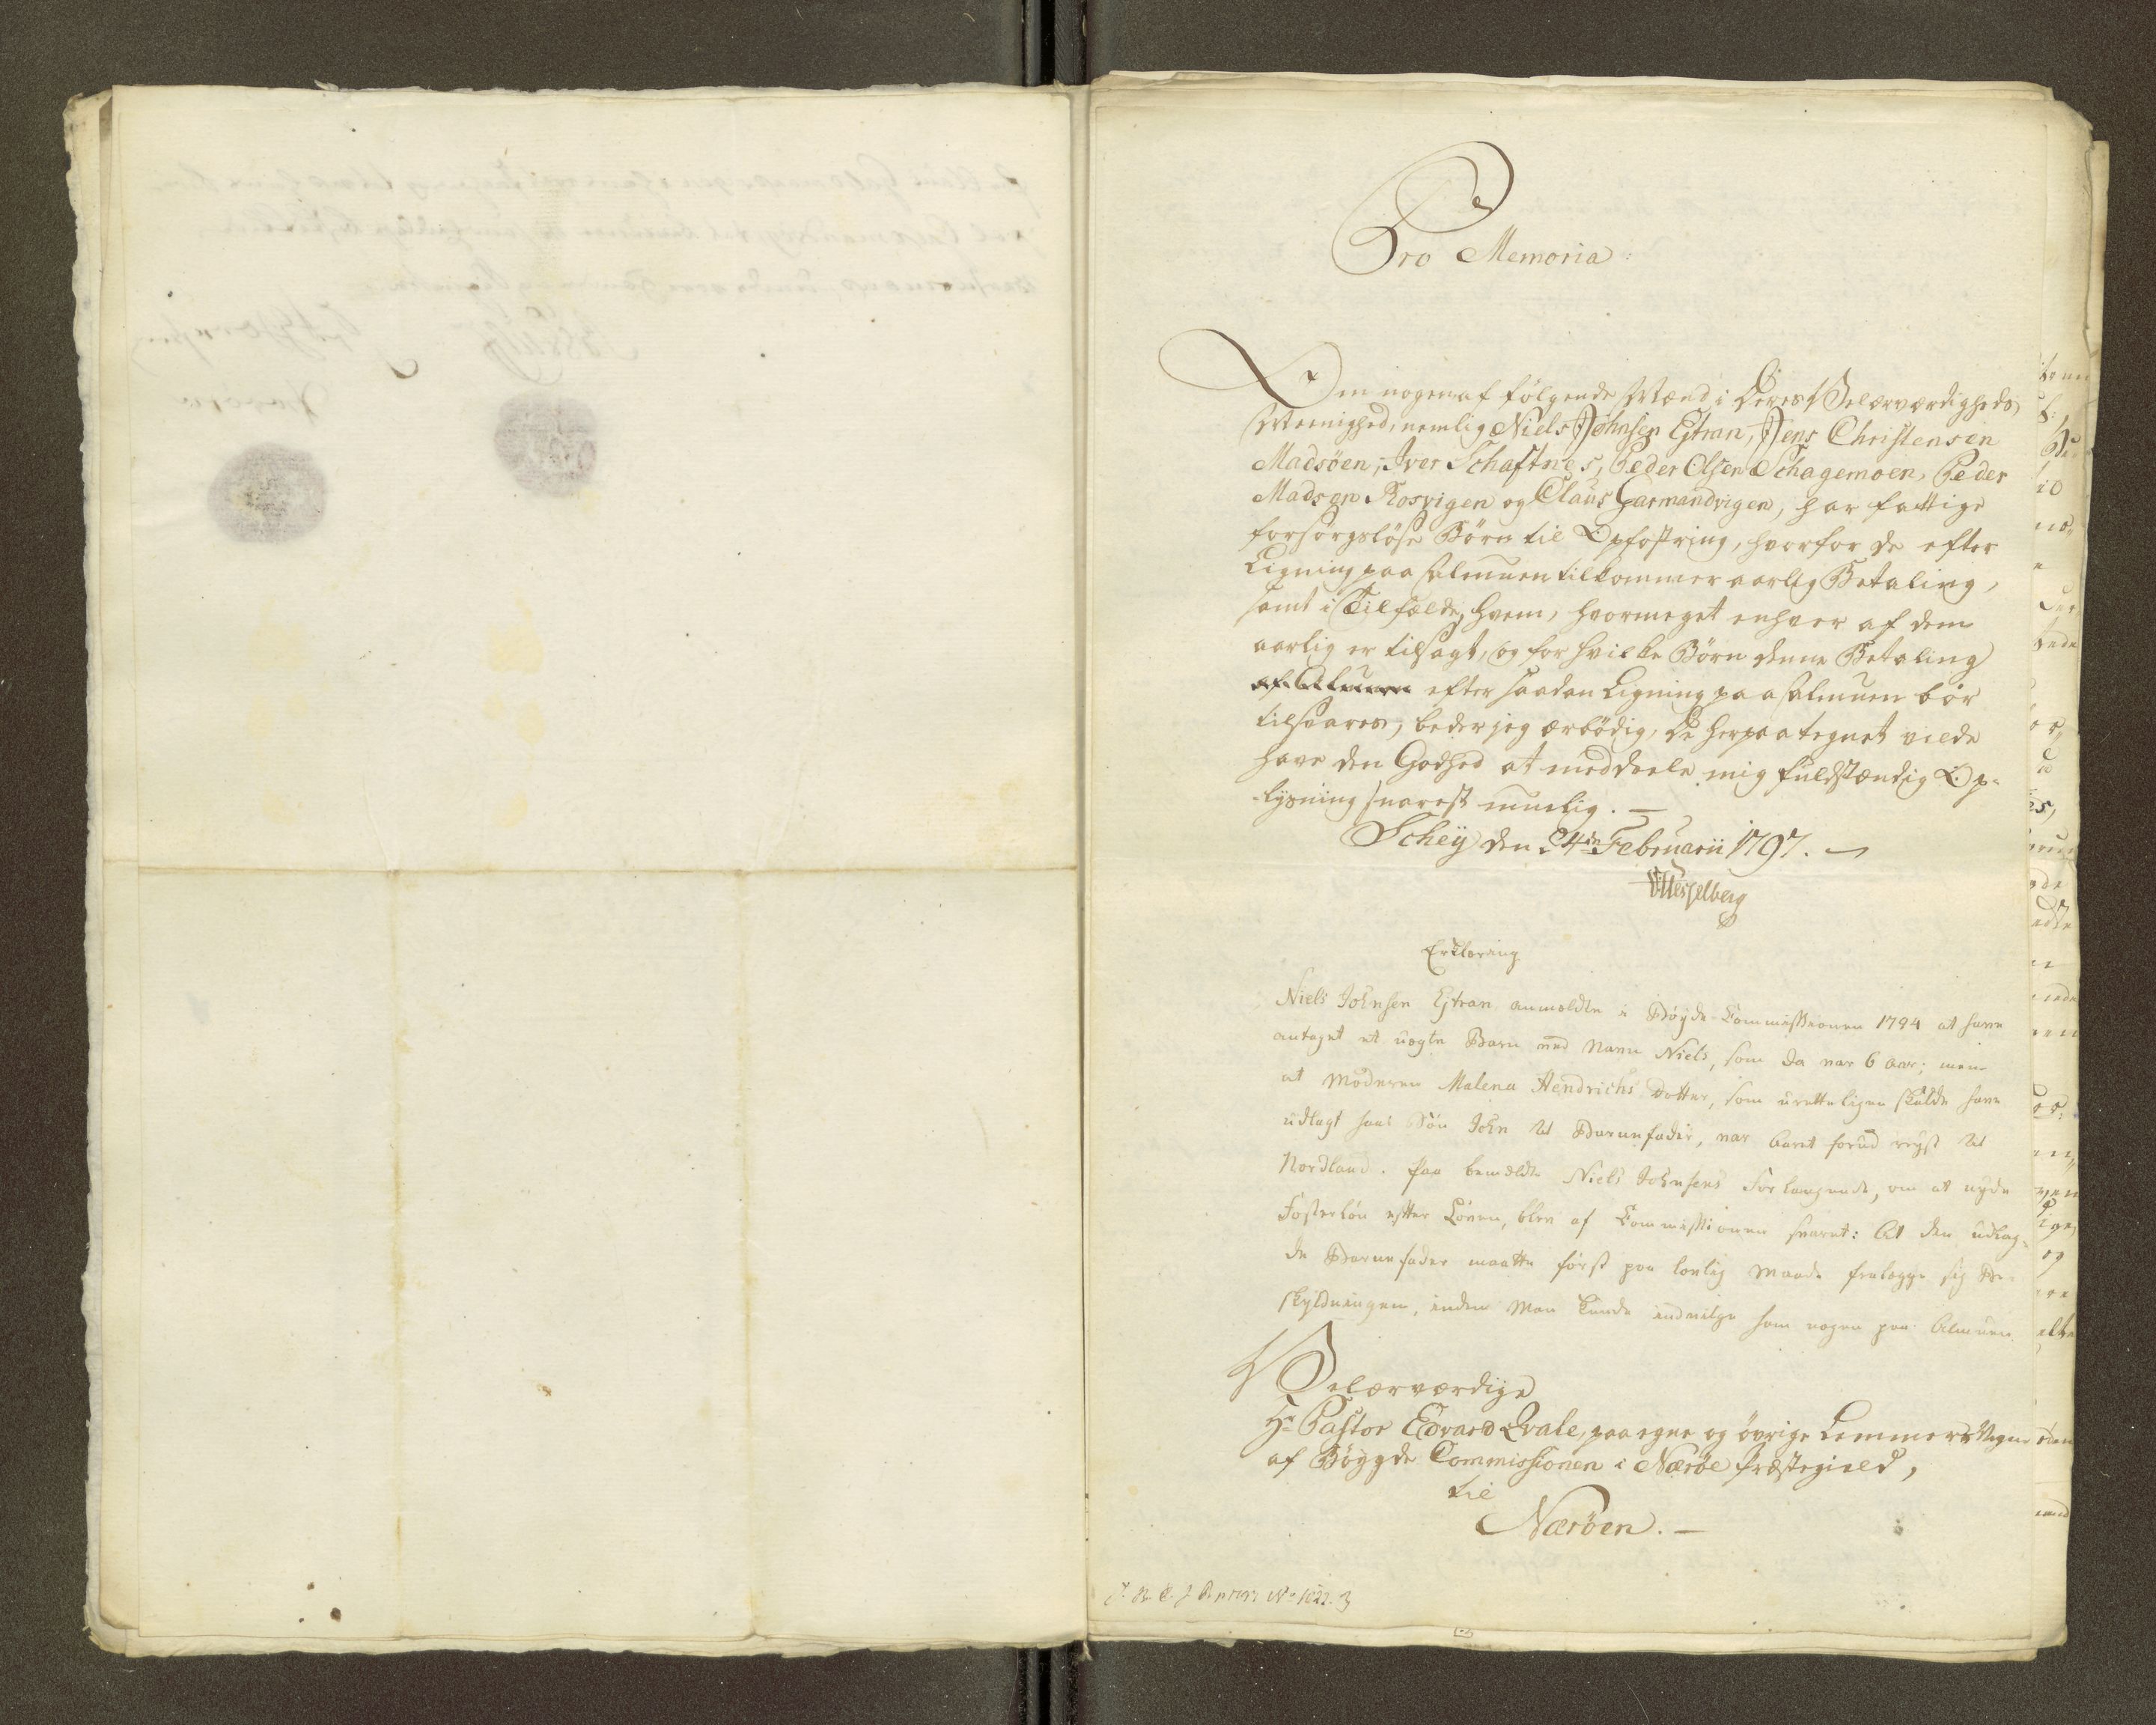 Pro Memoria:
Om nogen af følgende Mænd i Deres Velærværdigheds
Meenighed, nemlig Niels Johnsen Eftran, Jens Christensen
Madsöen, Iver Schaftnes, Peder Olsen Schagemoen, Peder
Madsen Rosvigen og Claus Garmandvigen, har fattige
forsørgsløse Børn til Opfostring, hvorfor de efter
Ligning paa Almuen tilkommer aarlig Betaling,
samt i Tilfælde, hvem, hvormeget enhver af dem
aarlig er tilsagt, og for hvilke Børn denne Betaling
af Almuen efter saadan Ligning paa Almuen bør
tilsvares, beder jeg ærbödig, De herpaategnet vilde
have den Godhed at meddeele mig fuldstændig Op-
-lysning snarest muelig. —
Schey den 24de Februarii 1797. —
Wesselberg
Erklæring
Niels Johnsen Eftran anmeldte i Bøyde-Commissionen 1794 at have
antaget et uægte Barn ved Navn Niels, som da var 6 aar; men
at Moderen Malena Hendrichs Dotter, som uretteligen skulde have
udlagt hans Søn John til Barnefader, var baret forud reyst til
Nordland. Paa bemeldte Niels Johnsens Forlangende, om at nyde
Fosterløn efter Loven, blev af Commissionen svaret: At den udlag-
de Barnefader maatte først paa lovlig Maade fralægge sig Be-
skyldningen, inden Man kunde indvilge ham nogen paa Almuen
Velærværdige
Hr Pastor Edvard Qvale, paa egne og øvrige Lemmers Vegne
af Böygde Commissionen i Nærøe Præstegield,
til
Næröen. —
No 1022.